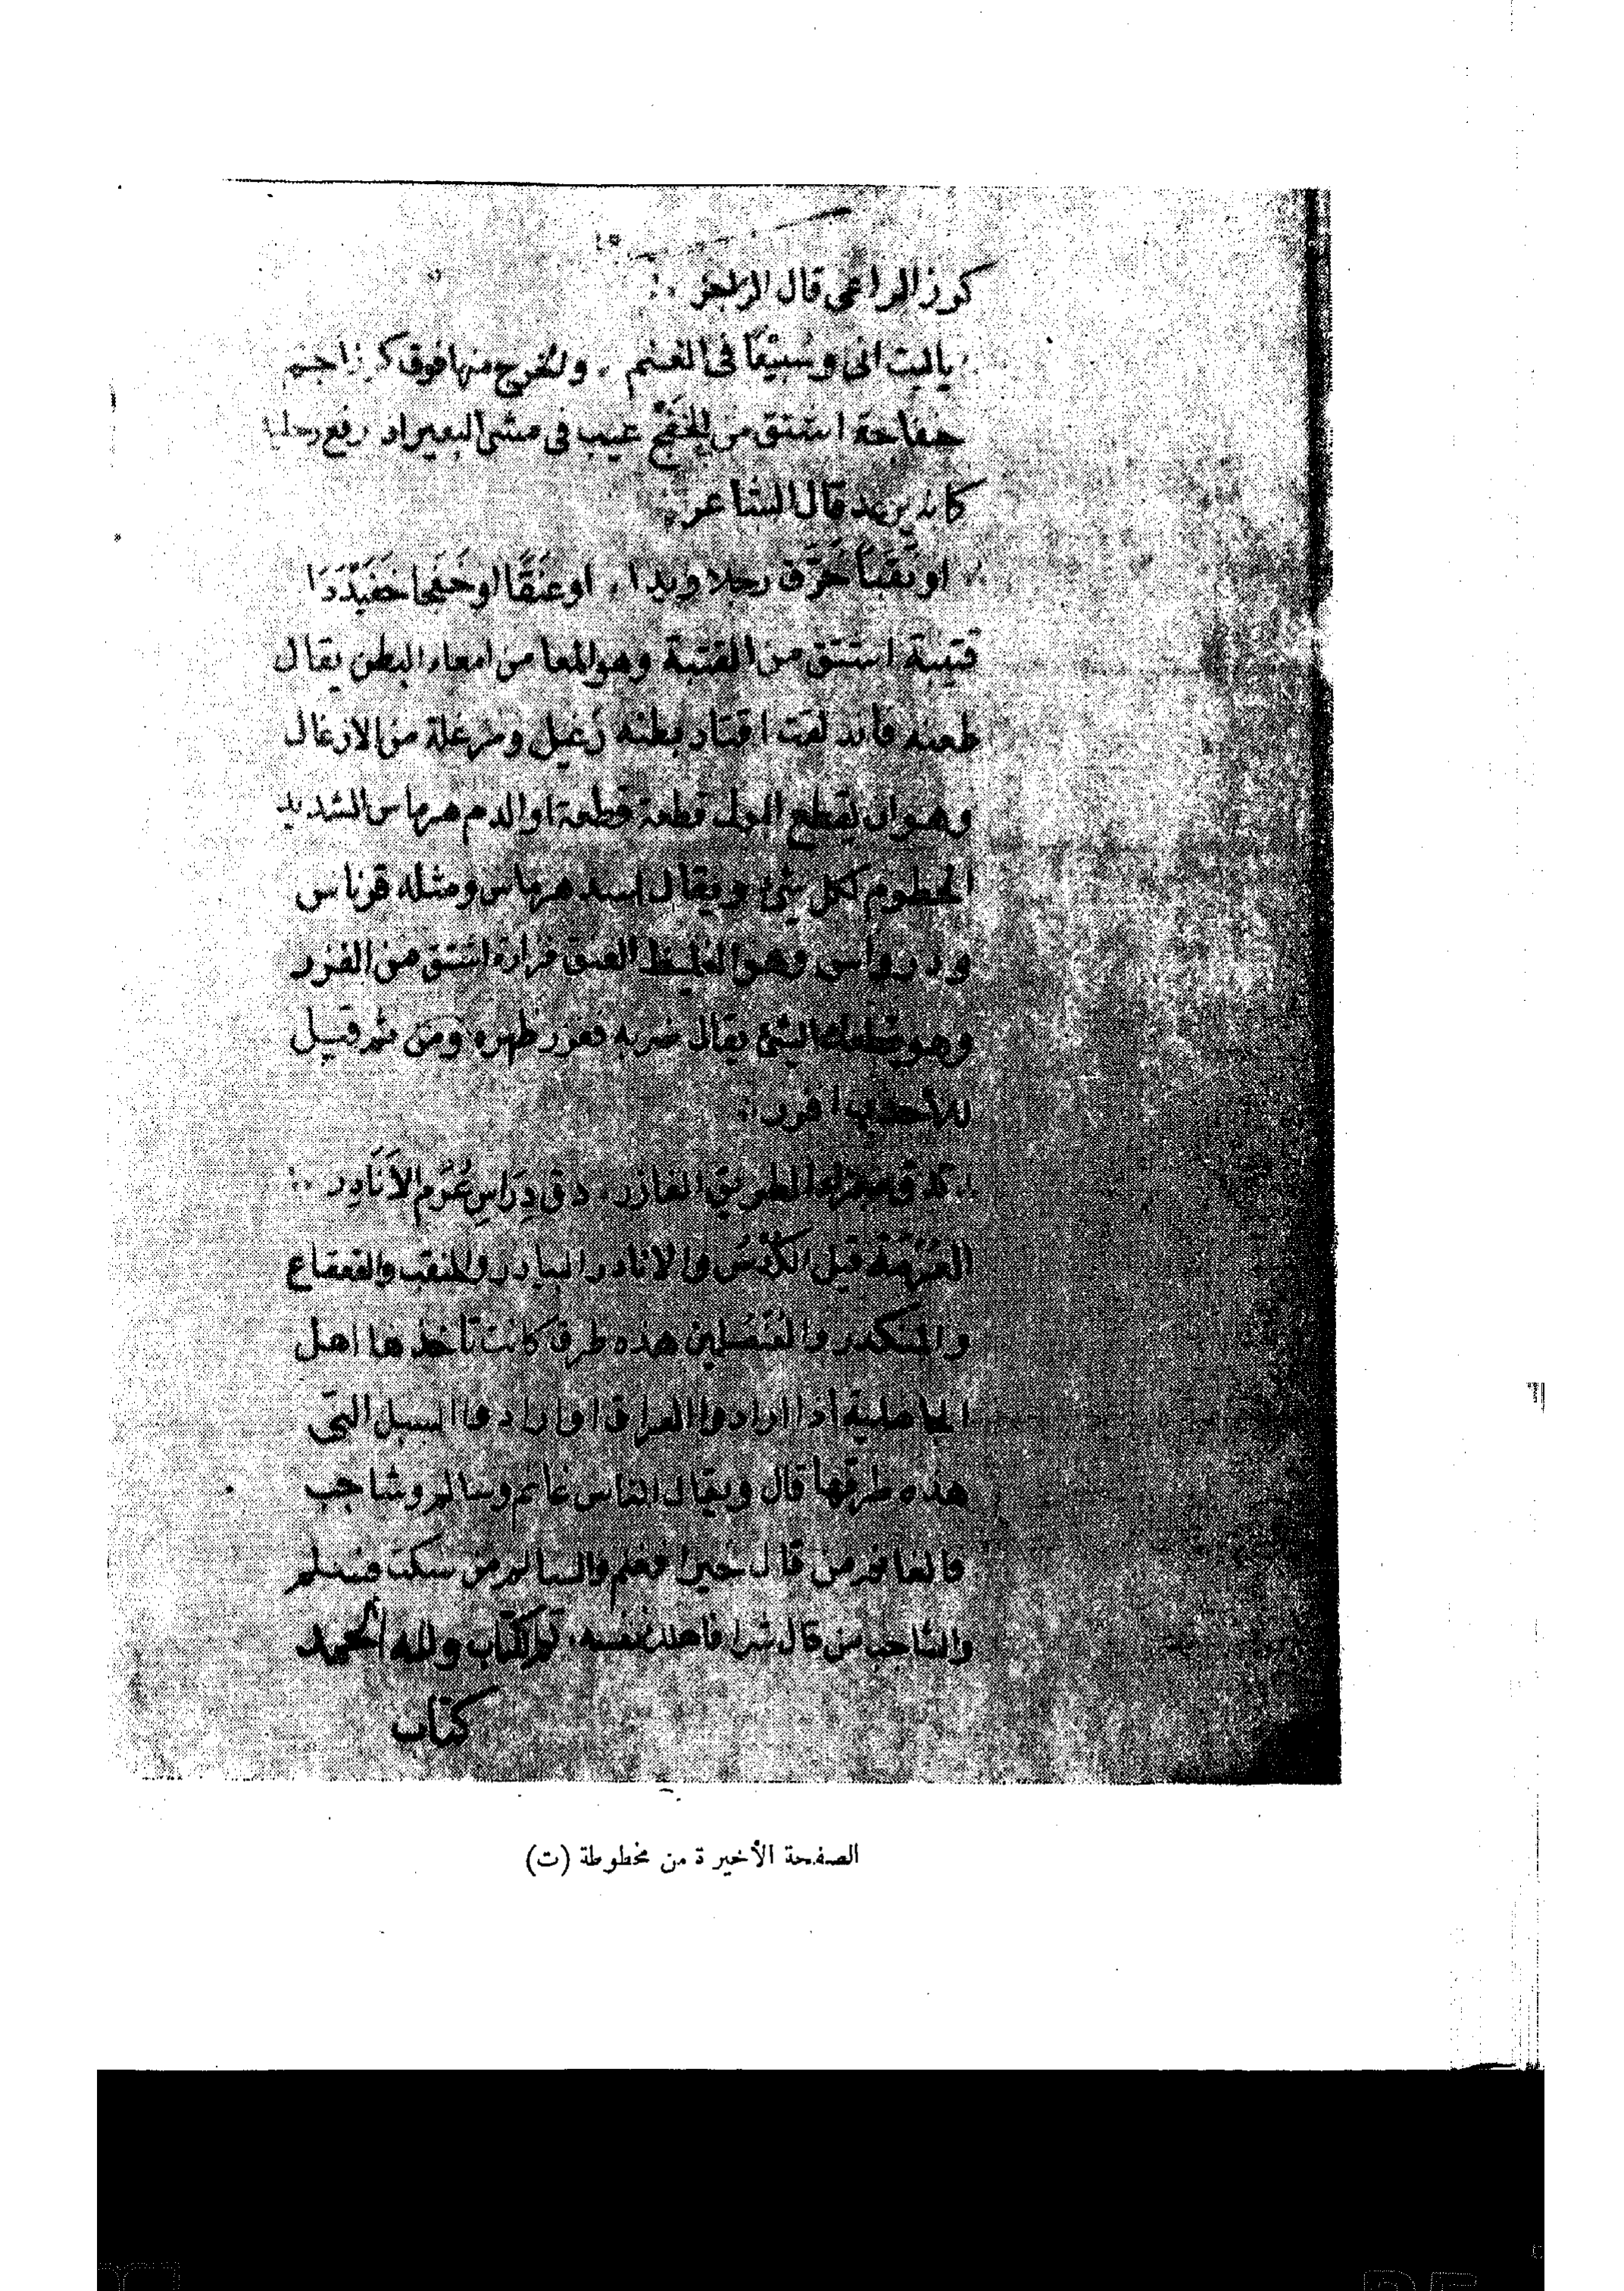 كورز الراعى قال الراجز
ياليت انى وسُبَيْعًا فى الغنم . والخرج منها فوق كراز اجم
خفاجة اشتق من الخَفَج عيب فى مشى البعير اذا رفع رجليه
كانه يرعد قال الشاعر
او نَقَبًا خَرَّق رجلا ويدا . او عَنَقًا او خَفَجا خَفَيْدَدَا
قتيبة اشتق من القتبة وهو المعا من امعاء البطن يقال
طعنه فاندلقت اقتاب بطنه زغيل ومزغلة من الازغال
وهو ان يقطع البول قطعة قطعة او الدم هرماس الشديد
الحطوم لكل شئ ويقال اسد هرماس ومثله قرناس
ودرواس وهو الغليظ العنق فزارة اشتق من الفزر
وهو الشئ يقال ضربه ففزر ظهره ومن ثم قيل
للأحدب افزر
الطريق الفازر . دق دِرَاسِ عُرَم الأَنَادِر
العُرْمَة قبل الكُدْس والانادر البيادر والمنقب والقعقاع
والمنكدر والعُنْصُلين هذه طرق كانت تأخذها اهل
الجاهلية اذا ارادوا العراق او ارادوا السبل التى
هذه طرقها قال ويقال الناس غانم وسالم وشاجب
فالغانم من قال خيرا فغنم والسالم من سكت فسلم
والشاجب من قال شرا فاهلك نفسه . تم الكتاب ولله الحمد
كتاب
الصفحة الأخيرة من مخطوطة (ت)